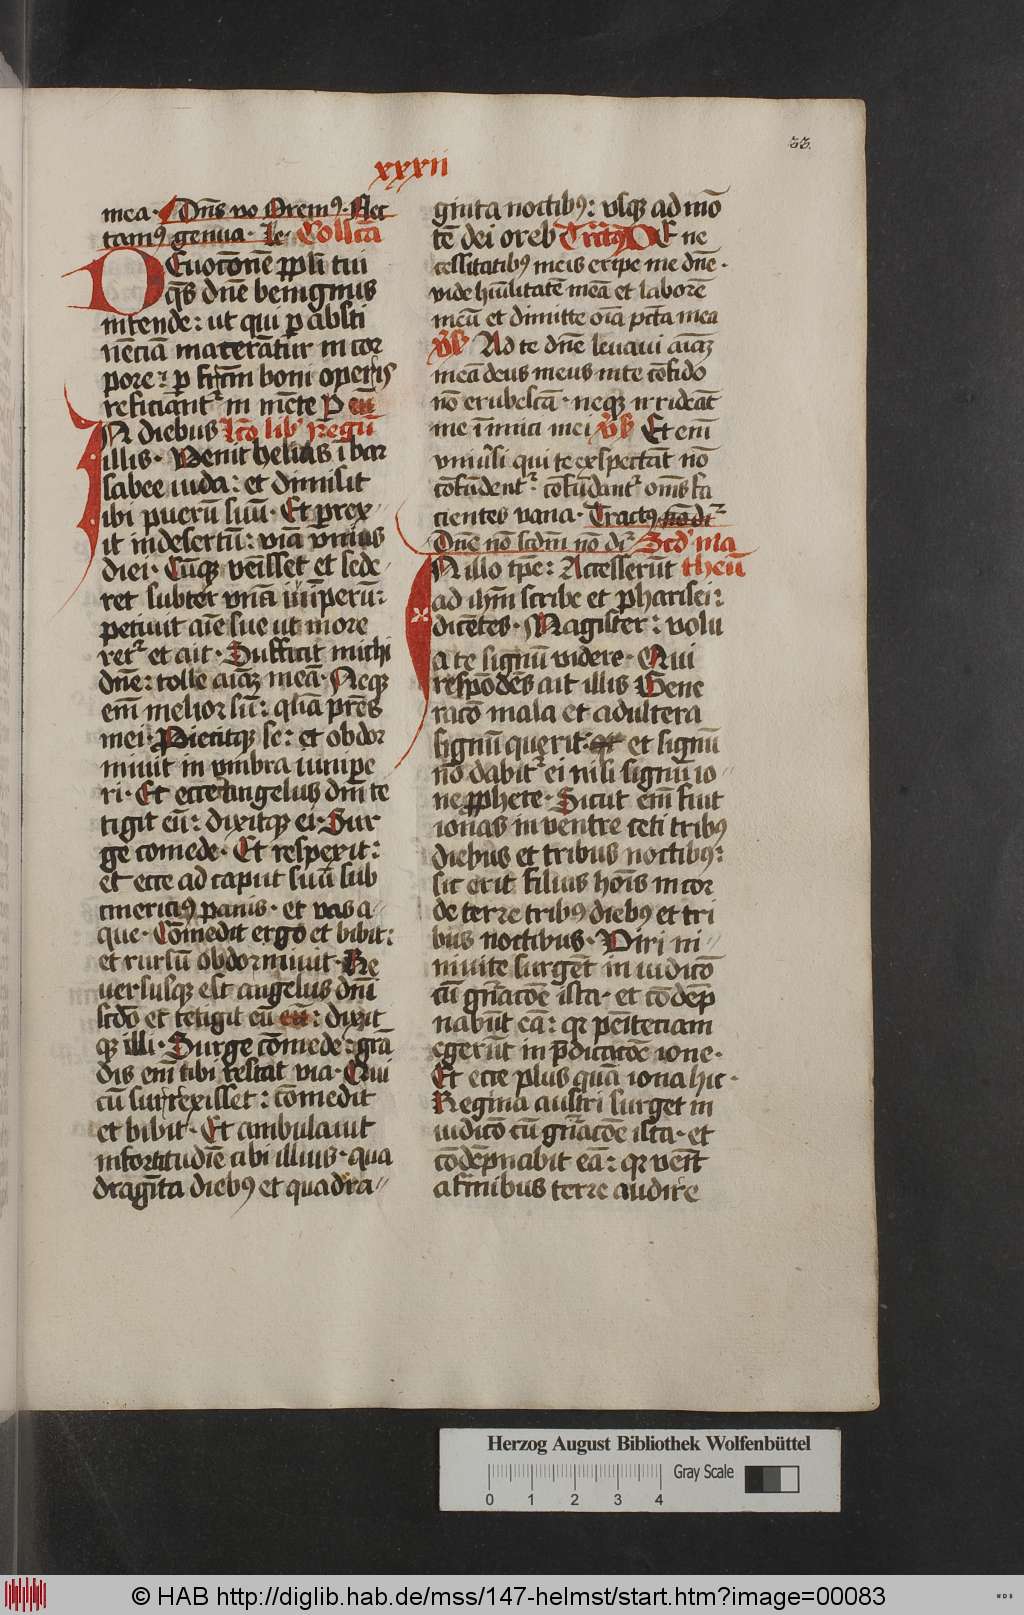 33.
xxxii
mea. Dn̄s vo Oremꝰ. Flec
tamꝰ genua. Le. Collcā
DEuotōnē ppli tui
qs̄ dn̄e benignus
intende: ut qui p absti
nēciā materātur in cor
pore: p fctm̄ boni operis
reficiant᷑ in mēte P eū
IN diebus Lcō lib' Regū
illis. Venit helias ī bar
sabee iuda: et dimisit
ibi puerū suū. Et prex
it in desertū: viā vnius
diei. Cūqꝫ veīsset et sede
ret subter vnā iūiperū:
petiuit aīe sue ut more
ret᷑ et ait. Sufficit michi
dn̄e: tolle aīaꝫ meā. Neqꝫ
em̄ melior sū: qm̄ prēs
mei. Proiecitqꝫ se: et obdor
miuit in vmbra iunipe
ri. Et ecce angelus dm̄ te
tigit eū: dixitqꝫ ei. Sur
ge comede. Et respexit:
et ecce ad caput suū sub
cinericiꝰ panis. et vas a
que. Cōmedit ergo et bibit:
et rursū obdormiuit. Re
uersusqꝫ est angelus dm̄
scdō et tetigit eū eū: dixit
qꝫ illi. Surge cōmede: grā
dis em̄ tibi restat via. Qui
cū surrexisset: cōmedit
et bibit. Et ambulauit
in fortitudīe cibi illius. qua
dragīta diebꝰ et quadra
ginta noctibꝰ: vsqꝫ ad mō
tē dei oreb Trctꝰ DE ne
cessitatibꝰ meis eripe me dn̄e.
vide hūilitatē meā et laborē
meū et dimitte oīa pctā mea
v̄s Ad te dn̄e leuaui aīaꝫ
meā deus meus in te cōfido
nō erubescā. neqꝫ irrideāt
me īimici mei v̄s Et em̄
vniūsi qui te exspectāt nō
cōfūdent᷑. cōfūdant᷑ om̄s fa
cientes vana. Tractꝰ nō di᷑
Dn̄e nō scdm̄ nō di᷑ Scd' ma
IN illo tp̄e: Accesserūt theū
ad ihm̄ scribe et pharisei:
dicētes. Magister: volu
a te signū videre. Qui
respōdēs ait illis Gene
racō mala et adultera
signū querit. et signū
nō dabit᷑ ei nisi signū io
ne pphete. Sicut em̄ fuit
ionas in ventre ceti tribꝰ
diebus et tribus noctibꝰ:
sic erit filius hoīs in cor
de terre tribꝰ diebꝰ et tri
bus noctibus. Viri ni
niuite surgēt in iudicō
cū gn̄acōe ista. et cōdēp
nabūt eā: qꝛ penīteciam
egerūt in p̄dicacōe ione.
Et ecce plus quā iona hic.
Regina austri surget in
iudicō cū gn̄acōe ista. et
cōdēpnabit eā: qꝛ venīt
a finibus terre audire
Herzog August Bibliothek Wolfenbüttel
Gray Scale
0 1 2 3 4
© HAB http://diglib.hab.de/mss/147-helmst/start.htm?image=00083